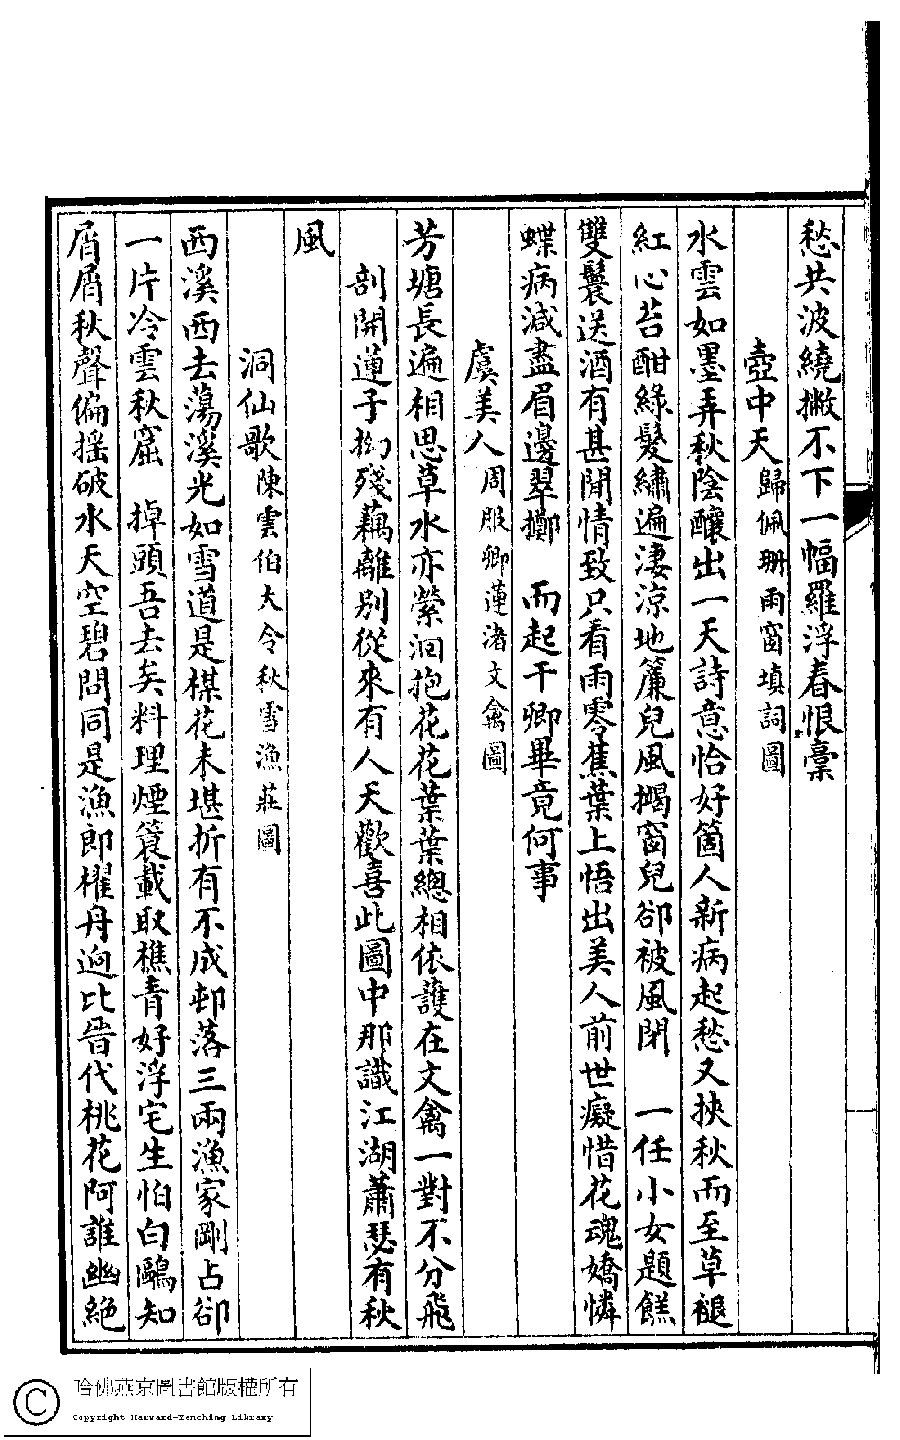 愁共波繞撇不下一幅羅浮春恨稾
壺中天歸佩珊雨窗填詞圖
水雲如墨弄秋陰釀出一天詩意恰好箇人新病起愁又挾秋而至草褪
紅心苔酣綠髮繡遍淒涼地簾兒風揭窗兒卻被風閉　一任小女題餻
雙鬟送酒有甚閒情致只看雨零蕉葉上悟出美人前世癡惜花魂嬌憐
蝶病減盡眉邊翠擲　而起干卿畢竟何事
虞美人周服卿蓮渚文禽圖
芳塘長遍相思草水亦縈洄抱花花葉葉總相依護在文禽一對不分飛
剖開蓮子拗殘藕離別從來有人天歡喜此圖中那識江湖蕭瑟有秋
風
洞仙歌陳雲伯大令秋雪漁莊圖
西溪西去蕩溪光如雪道是楳花未堪折有不成邨落三兩漁家剛占卻
一片冷雲秋窟　掉頭吾去矣料理煙簑載取樵青好浮宅生怕白鷗知
屑屑秋聲偏搖破水天空碧問同是漁郎櫂舟迎比晉代桃花阿誰幽絕
哈佛燕京圖書館版權所有
Copyright Harvard-Yenching Library